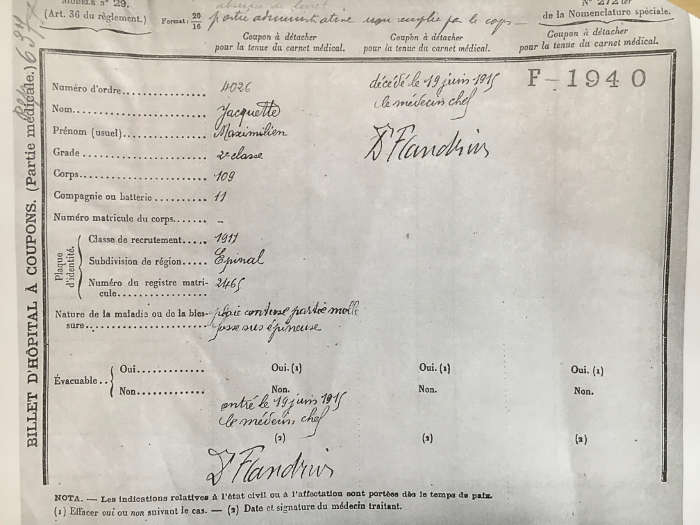 MODÈLE N° 29.
(Art. 36 du règlement.)
Format: 20/16
partie administrative non remplie par le corps
N° 272 ter
de la Nomenclature spéciale.
Coupon à détacher
pour la tenue du carnet médical.
Coupon à détacher
pour la tenue du carnet médical.
Coupon à détacher
pour la tenue du carnet médical.
BILLET D'HÔPITAL À COUPONS. (Partie médicale.)
Numéro d'ordre 4026
Nom Jacquette
Prénom (usuel) Maximilien
Grade 2e classe
Corps 109
Compagnie ou batterie 11
Numéro matricule du corps -
Plaque d'identité.
Classe de recrutement 1911
Subdivision de région Epinal
Numéro du registre matri-
cule 2465
Nature de la maladie ou de la bles- plaie contuse partie molle
sure fosse sus épineuse
décédé le 19 juin 1915
le médecin chef
Dr Flandrin
F-1940
Évacuable
Oui Oui. (1) Oui. (1) Oui. (1)
Non Non. Non. Non.
entré le 19 juin 1915
le médecin chef
(2) (2) (2)
Dr Flandrin
NOTA. — Les indications relatives à l'état civil ou à l'affectation sont portées dès le temps de paix.
(1) Effacer oui ou non suivant le cas. — (2) Date et signature du médecin traitant.